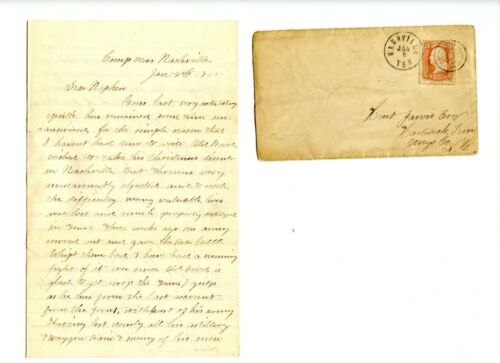 Camp near Nashville
Jan 4th 186
Dear Nephew
Your last very interesting
epistle has remained some time un
answered for the simple reason that
I havent had time to write. Old Hood
wished to take his Christmas dinner
in Nashville But Thomas very
unmannerly objected and to settle
the difficulty many valuable lives
were lost and much property destroyed
in Tenn. Three weeks ago our army
moved out and gave the Rebs battle
Whipt them bad I have had a running
fight of it ever since Old Hood is
glad to get across the Tenn I guess
as he has from the last account
from the front, with part of his army
Having lost nearly all his artillery
& waggon train & many of his men
NASHVILLE
JAN
5
TEN
Kent Jarvis Esq
Hartwick Sem
Otsego Co
N. Y.